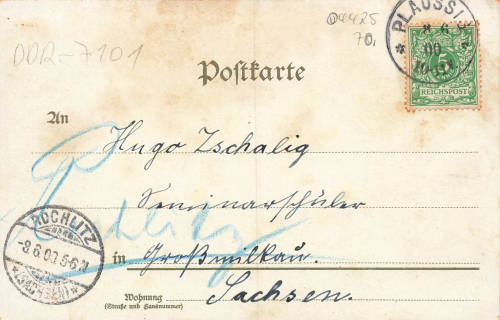 DDR-7101
04425
70,
PLAUSSIG
8 6
00
5
REICHSPOST
Postkarte
An
Hugo Zschalig
Seminarschüler
Rochlitz
in Großmilkau.
Sachsen.
Wohnung
(Straße und Hausnummer)
ROCHLITZ
-8.6.00.5-6.N
*(SACHSEN)*